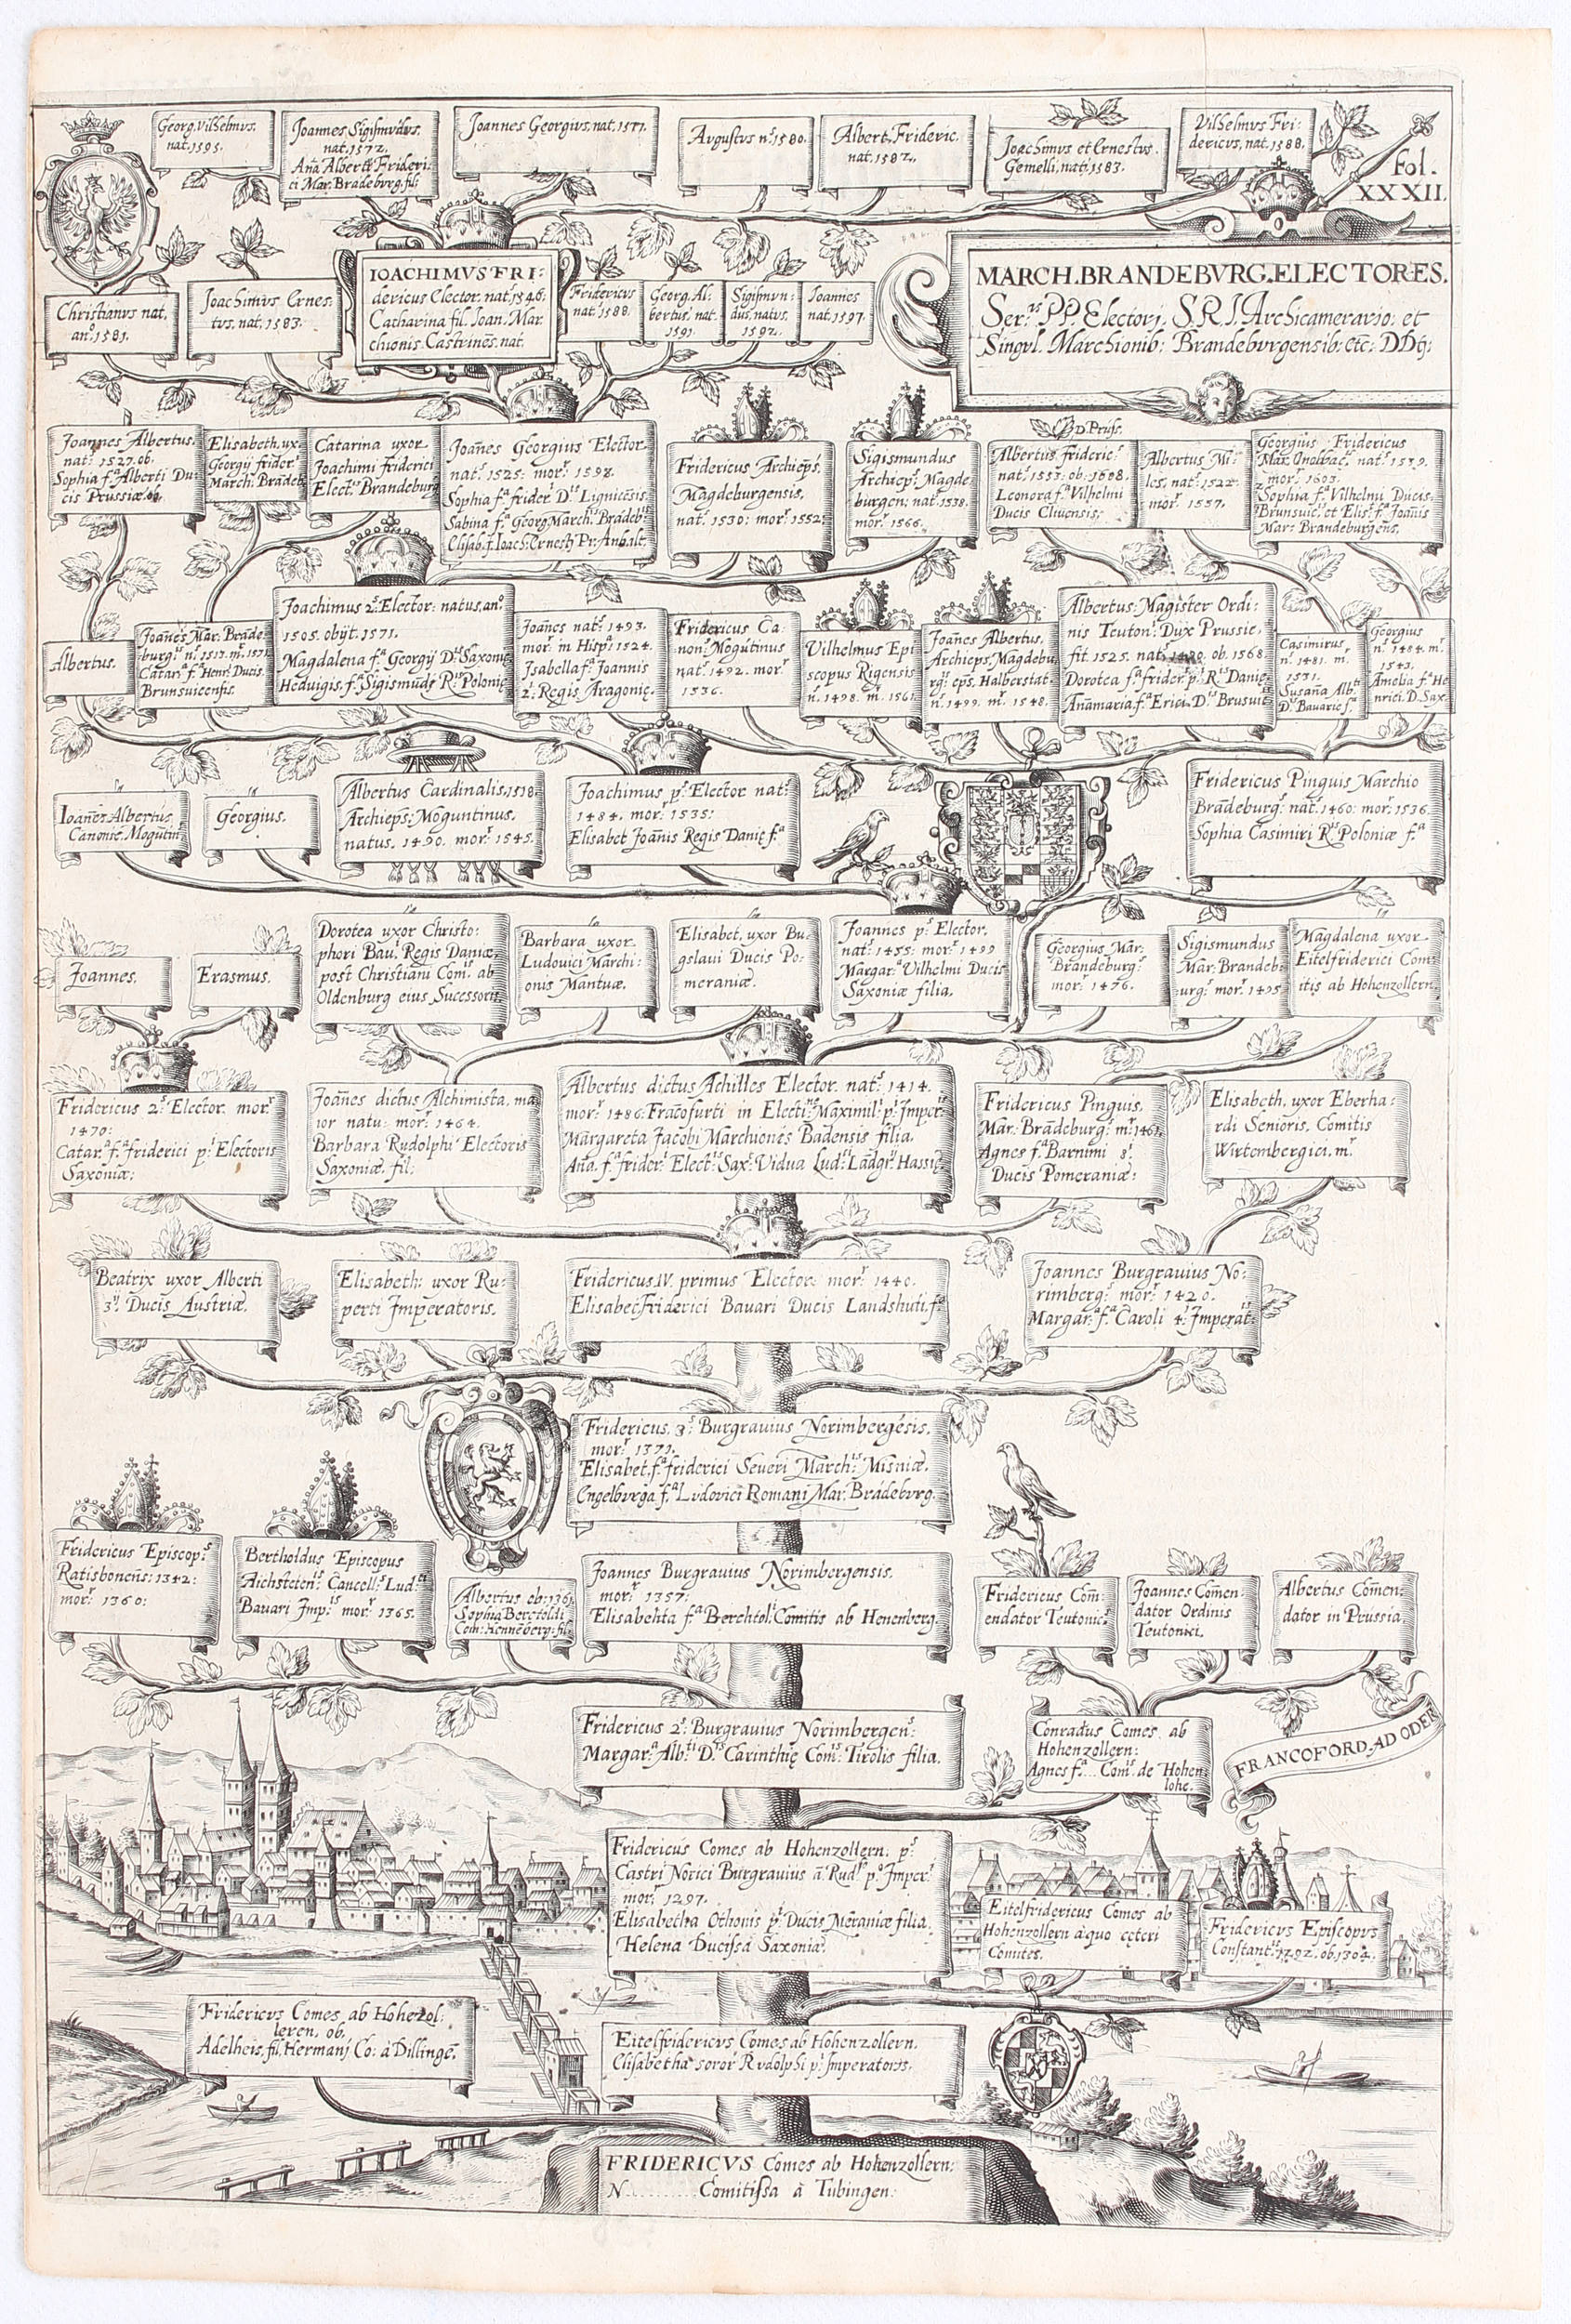 Georg. Vilhelmus.
nat. 1595.
Joannes Sigismundus.
nat. 1572.
Aña Alberti Frideri:
ci Mar. Brādeburg. fil:
Joannes Georgius, nat. 1577.
Augustus n: 1580.
Albert. Frideric.
nat. 1582.
Joachimus et Ernestus.
Gemelli, nati. 1583.
Vilhelmus Fri:
dericus, nat. 1588.
Fol.
XXXII.
MARCH. BRANDEBVRG. ELECTORES.
Ser. PP. Electori, S.R.I. Archicamerario: et
Singul. Marchionib: Brandeburgensib: etc: DDq:
Christianus nat.
an. 1581.
Joachimus Ernes:
tus, nat. 1583.
IOACHIMVS FRI:
dericus Elector. nat. 1546.
Catharina fil. Ioan. Mar:
chionis Castrines. nat.
Fridericus
nat. 1588.
Georg. Al:
bertus, nat.
1591.
Sigismun:
dus, natus.
1592.
Joannes
nat. 1597.
Joannes Albertus.
nat. 1527. ob.
Sophia f. Alberti Du:
cis Prussiæ
Elisabeth, ux.
Georgij frider.
March: Brādeb
Catarina uxor
Joachimi Friderici
Elect. Brandeburg
Joānes Georgius Elector
nat. 1525: mor. 1598.
Sophia f. frider. D. Lignicēsis
Sabina f. Georg. March: Brādeb:
Elisab. f. Ioach. Ernesti Pr. Anhalt.
Fridericus Archieps
Magdeburgensis,
nat. 1530: mor. 1552.
Sigismundus
Archiep. Magde
burgen; nat. 1538.
mor. 1566.
D. Pruss.
Albertus frideric:
nat. 1553. ob. 1608.
Leonora f. Vilhelmi
Ducis Cliuensis.
Albertus Mi:
les, nat. 1522
mor. 1557.
Georgius Fridericus
Mar. Onolbac. nat. 1539.
mor: 1603.
Sophia f. Vilhelmi Ducis.
Brunsuic. et Elis. f. Joānis
Mar: Brandeburgens.
Albertus.
Joānes Mar. Brāde:
burg. n. 1513. m. 1571.
Catar. f. Henr. Ducis
Brunsuicensis.
Joachimus 2. Elector: natus, an.
1505. obijt. 1571.
Magdalena f. Georgij D. Saxonię
Heduigis. f. Sigismudi R. Polonię
Joānes nat. 1493.
mor. in Hisp. 1524.
Isabella f. Joannis
2. Regis Aragonię.
Fridericus Ca
non. Mogūtinus
nat. 1492. mor
1536.
Vilhelmus Epi
scopus Rigensis
n. 1498. m. 1561
Joānes Albertus,
Archieps. Magdebu
rg: eps. Halberstat.
n. 1499. m. 1548.
Albertus Magister Ordi:
nis Teuton: Dux Prussie,
fit. 1525. nat. 1490. ob. 1568
Dorotea f. frider. p. R. Danię
Anamaria. f. Erici D. Brusuic
Casimirus
n. 1481. m.
1531.
Susāna Alb.
D. Bauarie f.
Georgius
n. 1484. m.
1543.
Amelia f. He
nrici. D. Sax.
Joānes Albertus
Canonic. Mogūtin.
Georgius.
Albertus Cardinalis. 1518.
Archieps: Moguntinus.
natus. 1490. mor. 1545.
Joachimus p. Elector nat.
1484. mor: 1535:
Elisabet Joānis Regis Danię f.
Fridericus Pinguis Marchio
Brādeburg. nat. 1460: mor. 1536
Sophia Casimiri R. Poloniæ f.
Joannes.
Erasmus.
Dorotea uxor Christo:
phori Bau. Regis Daniæ,
post Christiani Com. ab
Oldenburg eius Sucessoris
Barbara uxor
Ludouici Marchi:
onis Mantuæ.
Elisabet, uxor Bu
gslaui Ducis Po:
meraniæ.
Joannes p. Elector.
nat. 1455: mor. 1499
Margar. Vilhelmi Ducis
Saxoniæ filia.
Georgius Mar:
Brandeburg:
mor. 1476.
Sigismundus
Mar: Brandeb:
urg: mor. 1495
Magdalena uxor
Eitelfriderici Com
itis ab Hohenzollern.
Fridericus 2. Elector. mor.
1470:
Catar. f. friderici p. Electoris
Saxoniæ:
Joānes dictus Alchimista, ma
ior natu: mor. 1464.
Barbara Rudolphi Electoris
Saxoniæ, fil:
Albertus dictus Achilles Elector. nat. 1414.
mor. 1486. Fracofurti in Electi: Maximil: p. Imper.
Margareta Jacobi Marchionēs Badensis filia.
Aña. f. frider. Elect. Sax. Vidua Lud. Lādgr. Hassię.
Fridericus Pinguis
Mar: Brādeburg: m. 1463.
Agnes f. Barnimi 8.
Ducis Pomeraniæ:
Elisabeth, uxor Eberha:
rdi Senioris, Comitis
Wirtembergici, m.
Beatrix uxor Alberti
3. Ducis Austriæ.
Elisabeth: uxor Ru:
perti Imperatoris.
Fridericus. IV. primus Elector: mor. 1440.
Elisabec Friderici Bauari Ducis Landshuti, f.
Joannes Burgrauius No:
rimberg: mor: 1420.
Margar: f. Caroli 4. Imperat:
Fridericus. 3. Burgrauius Norimbergēsis.
mor. 1371.
Elisabet, f. friderici Seueri March: Misniæ.
Engelburga f. Ludouici Romani Mar. Brādeburg.
Fridericus Episcop.
Ratisbonens: 1342:
mor: 1360:
Bertholdus Episcopus
Aichsteten: Cancell. Lud.
Bauari Imp: mor. 1365.
Albertus ob. 1361
Sophia Bertoldi
Com: Henneberg: fil.
Joannes Burgrauius Norimbergensis.
mor: 1357.
Elisabehta f. Berchtol. Comitis ab Henenberg.
Fridericus Com̄
endator Teutonic.
Joannes Com̄en
dator Ordinis
Teutonici.
Albertus Com̄en:
dator in Prussia.
Fridericus 2. Burgrauius Norimbergen:
Margar. Alb. D. Carinthię Com. Tirolis filia.
Conradus Comes. ab
Hohenzollern:
Agnes f. ... Com. de Hohen
lohe.
FRANCOFORD. AD ODER
Fridericus Comes ab Hohenzollern. p.
Castri Norici Burgrauius ā Rud. p. Imper.
mor; 1297.
Elisabetha Othonis p. Ducis Meraniæ filia.
Helena Ducissa Saxoniæ.
Eitelfridericus Comes ab
Hohenzollern à quo ceteri
Comites.
Fridericus Episcopus
Constant. 1292. ob. 1304.
Fridericus Comes ab Hohēzol:
leren, ob.
Adelheis, fil, Hermanj Co: à Dillingē.
Eitelfridericus Comes ab Hohenzollern.
Elisabetha soror Rudolphi p. Imperatoris.
FRIDERICVS Comes ab Hohenzollern:
N .......... Comitissa à Tubingen: